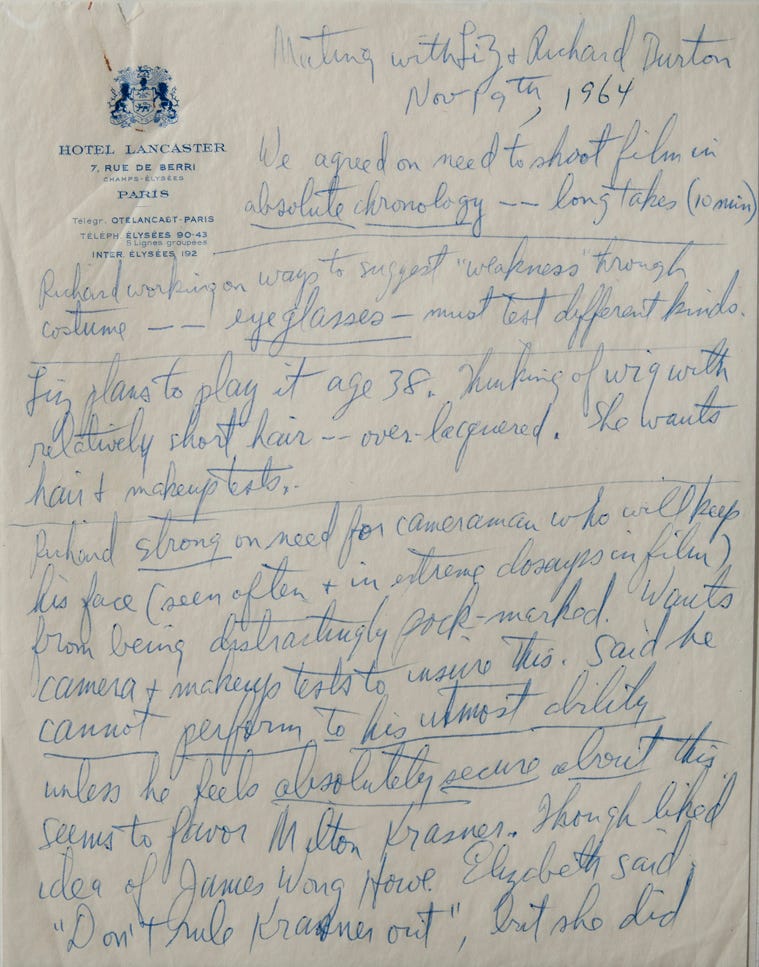 Meeting with Liz & Richard Burton
Nov 19th, 1964
HOTEL LANCASTER
7, RUE DE BERRI
CHAMPS-ÉLYSÉES
PARIS
Télégr. OTELANCAST-PARIS
TÉLÉPH. ÉLYSÉES 90-43
5 Lignes groupées
INTER. ÉLYSÉES 192
We agreed on need to shoot film in
absolute chronology -- long takes (10 min)
Richard working on ways to suggest "weakness" through
costume -- eyeglasses - must test different kinds.
Liz plans to play it age 38. Thinking of wig with
relatively short hair -- over-lacquered. She wants
hair & makeup tests.
Richard strong on need for cameraman who will keep
his face (seen often & in extreme closeups in film)
from being distractingly pock-marked. Wants
camera & makeup tests to insure this. Said he
cannot perform to his utmost ability
unless he feels absolutely secure about this
seems to favor Milton Krasner. Though liked
idea of James Wong Howe. Elizabeth said
"Don't rule Krasner out", but she did